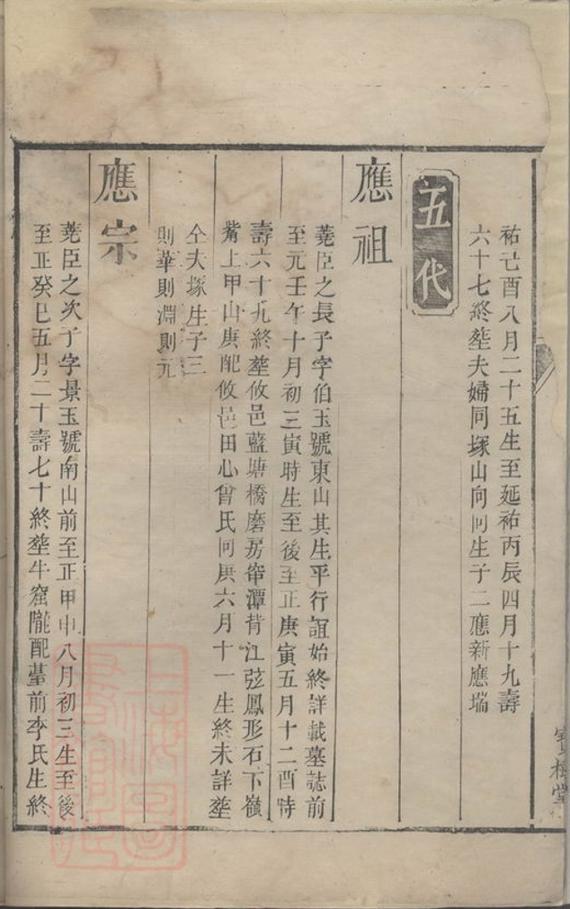 祐己酉八月二十五生至延祐丙辰四月十九壽
六十七終塟夫婦同塚山向同生子二應新應瑞
五代
應祖
蕘臣之長子字伯玉號東山其生平行誼始終詳載墓誌前
至元壬午十月初三寅時生至後至正庚寅五月十二酉時
壽六十九終塟攸邑藍塘橋磨房窂潭背江弦鳳形石下嶺
觜上甲山庚配攸邑田心曾氏同庚六月十一生終未詳塟
仝夫塚生子三
則華則淵則元
應宗
蕘臣之次子字景玉號南山前至正甲申八月初三生至後
至正癸巳五月二十壽七十終塟牛窟隴配墓前李氏生終
寶樹堂